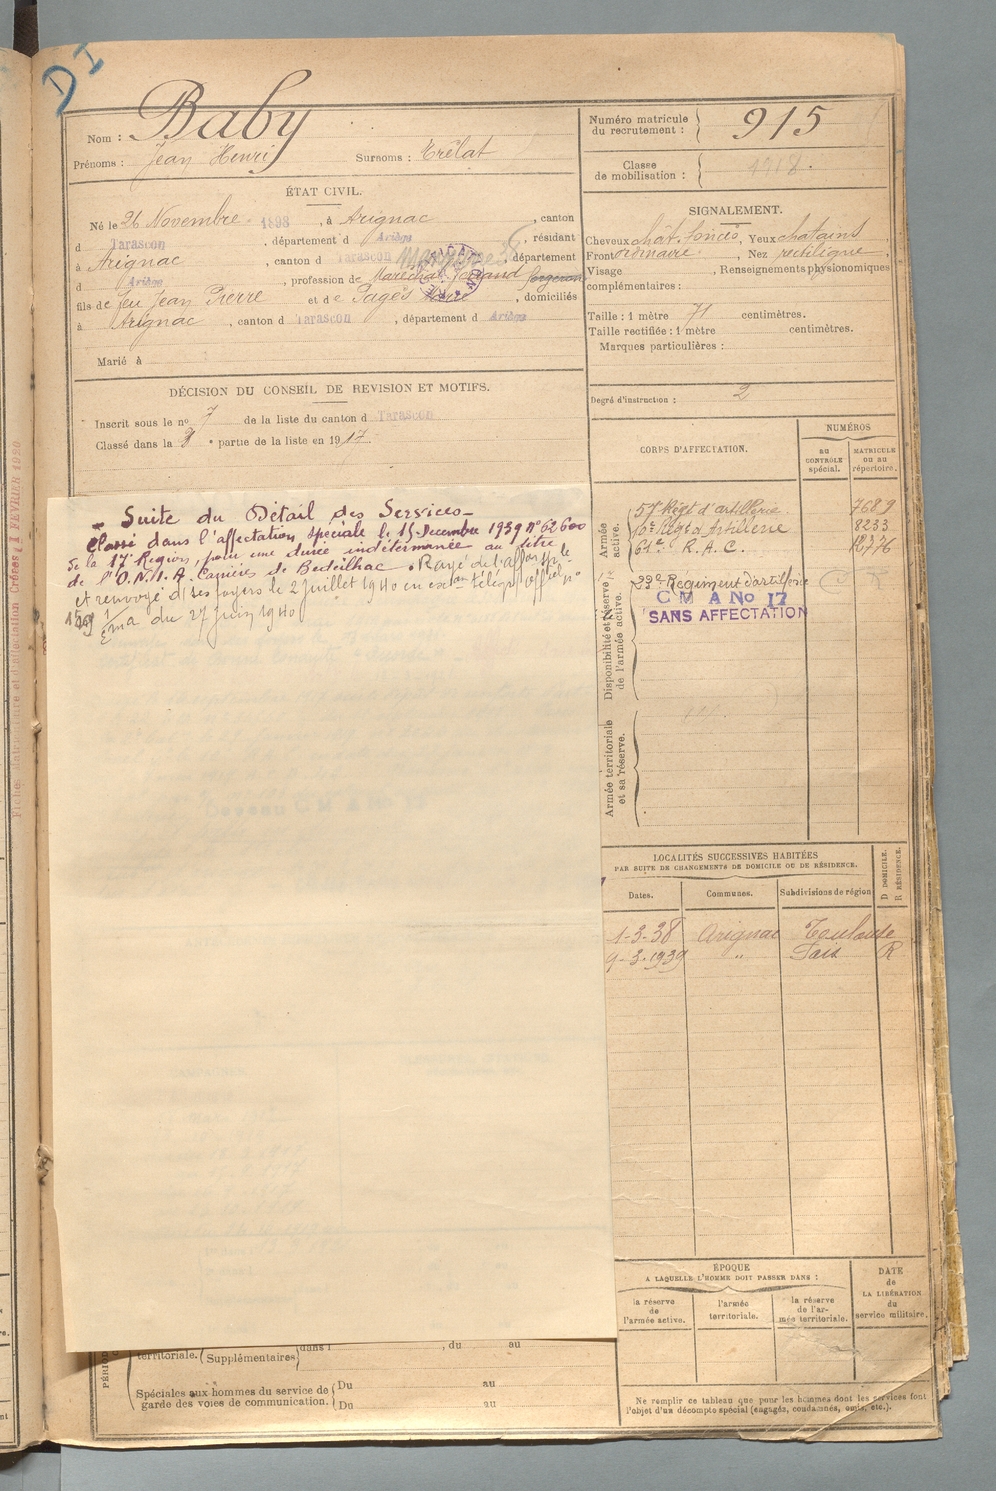 DI
Nom : Baby
Prénoms : Jean Henri Surnoms : Trélat
Numéro matricule du recrutement : 915
Classe de mobilisation : 1918.
ÉTAT CIVIL.
Né le 26 Novembre 1898, à Arignac, canton
d Tarascon, département d Ariège, résidant
à Arignac, canton d Tarascon, département
d Ariège, profession de Maréchal ferrand forgeron
fils de feu Jean Pierre et de Pagès Marie, domiciliés
à Arignac, canton d Tarascon, département d Ariège
Marié à
SIGNALEMENT.
Cheveux chât. foncés, Yeux chatains,
Front ordinaire, Nez rectiligne,
Visage, Renseignements physionomiques
complémentaires :
Taille : 1 mètre 71 centimètres.
Taille rectifiée : 1 mètre centimètres.
Marques particulières :
Degré d'instruction : 2
DÉCISION DU CONSEIL DE REVISION ET MOTIFS.
Inscrit sous le no 7 de la liste du canton d Tarascon
Classé dans la partie de la liste en 1917.
Suite du Détail des Services
Classé dans l'affectation spéciale le 15 Decembre 1939 n° 62600
de la 17e Region, pour une durée indéterminée au titre
de l'O.N.I.A. Carrière de Bedeilhac. Rayé de l'affon sple
et renvoyé d/ses foyers le 2 Juillet 1940 en exon télég. officiel n°
159 1/Ema du 27 Juin 1940
CORPS D'AFFECTATION.
NUMÉROS
au CONTRÔLE spécial.
MATRICULE ou au répertoire.
Armée active.
57e Régt d'artillerie 7689
Régt d'Artillerie 8233
61e R.A.C.
Disponibilité et réserve de l'armée active.
Régiment d'artillerie
C M A No 17
SANS AFFECTATION
Armée territoriale et sa réserve.
LOCALITÉS SUCCESSIVES HABITÉES
PAR SUITE DE CHANGEMENTS DE DOMICILE OU DE RÉSIDENCE.
Dates. Communes. Subdivisions de région D DOMICILE. R RÉSIDENCE.
1-3-38 Arignac Toulouse
9-3-1939 " Foix R
ÉPOQUE
A LAQUELLE L'HOMME DOIT PASSER DANS :
la réserve de l'armée active.
l'armée territoriale.
la réserve de l'armée territoriale.
DATE de LA LIBÉRATION du service militaire.
territoriale. (Supplémentaires dans l , du au
Spéciales aux hommes du service de garde des voies de communication.
Du au
Du au
Ne remplir ce tableau que pour les hommes dont les services font
l'objet d'un décompte spécial (engagés, condamnés, omis, etc.).